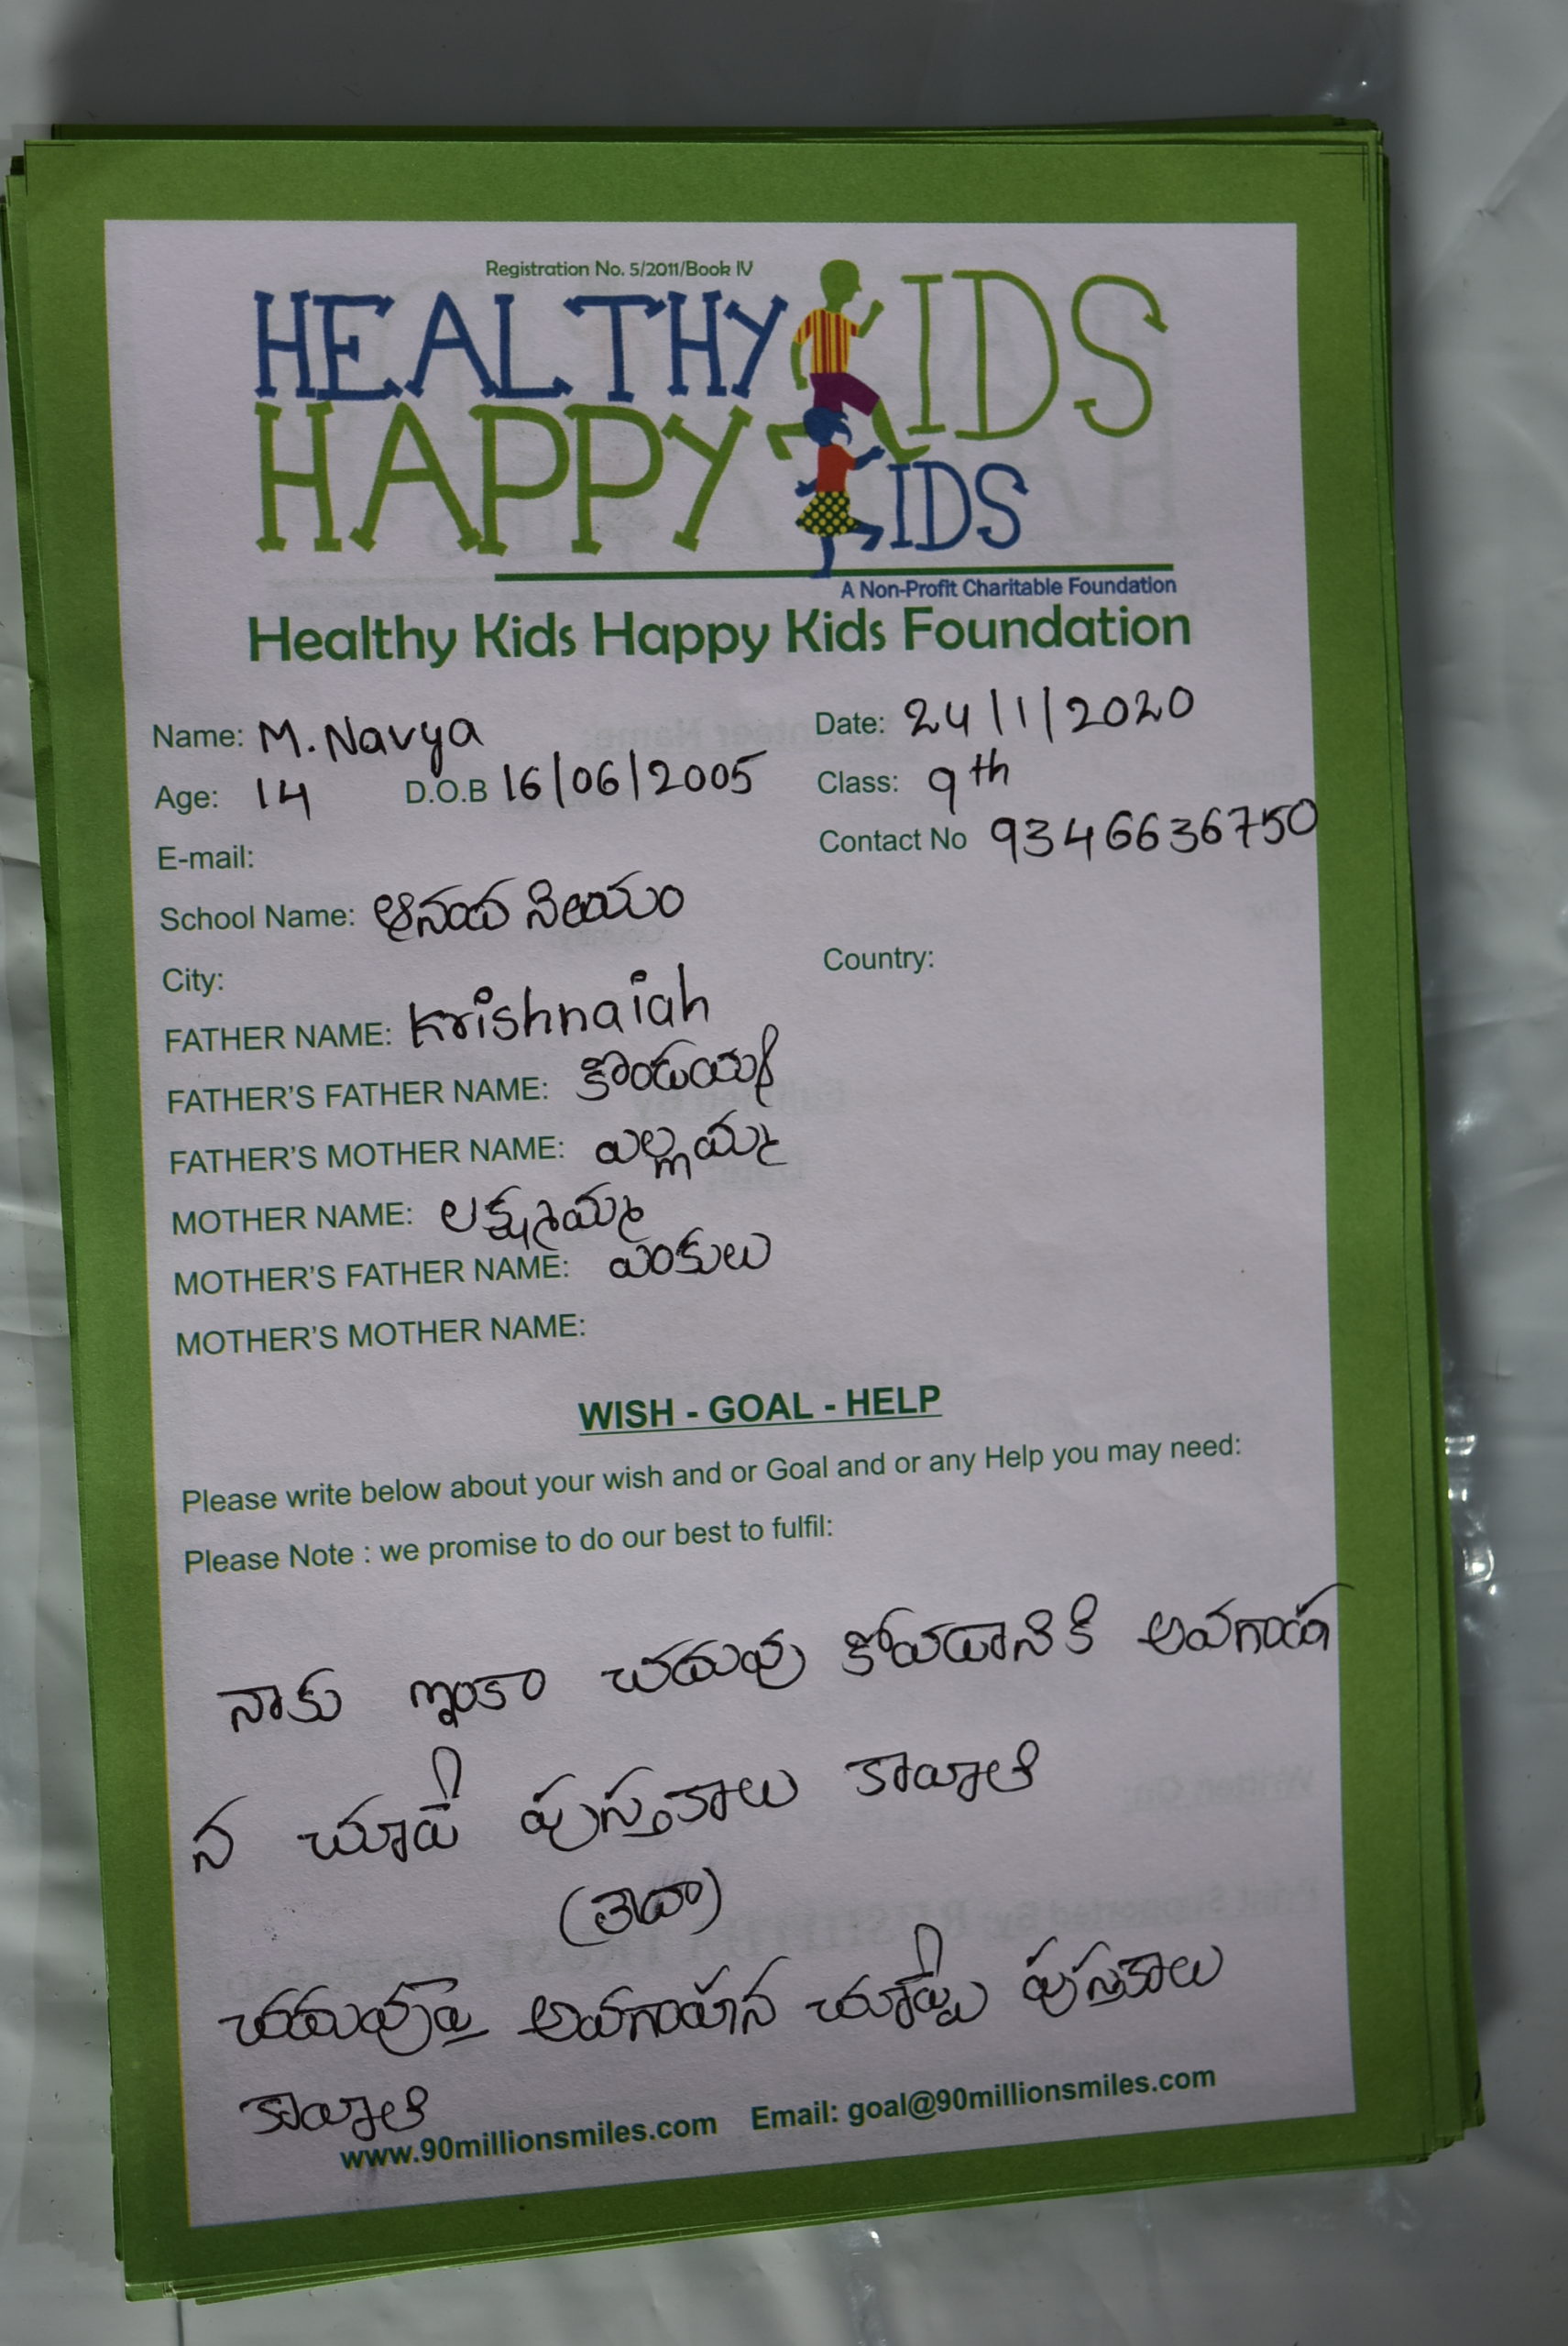 Registration No. 5/2011/Book IV
HEALTHY KIDS
HAPPY KIDS
A Non-Profit Charitable Foundation
Healthy Kids Happy Kids Foundation
Name: M. Navya Date: 24/1/2020
Age: 14 D.O.B 16/06/2005 Class: 9th
E-mail: Contact No 9346636750
School Name: ఆనంద నిలయం
City: Country:
FATHER NAME: Krishnaiah
FATHER'S FATHER NAME: కొండయ్య
FATHER'S MOTHER NAME: ఎల్లమ్మ
MOTHER NAME: లక్ష్మమ్మ
MOTHER'S FATHER NAME: వెంకులు
MOTHER'S MOTHER NAME:
WISH - GOAL - HELP
Please write below about your wish and or Goal and or any Help you may need:
Please Note : we promise to do our best to fulfil:
నాకు ఇంకా చదువు కోవడానికి అవగాహ
న చూపే పుస్తకాలు కావాలి
(లేదా)
చదువుపై అవగాహన చూపే పుస్తకాలు
కావాలి
www.90millionsmiles.com Email: goal@90millionsmiles.com